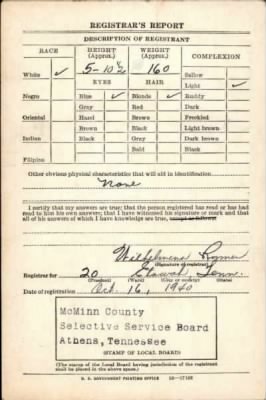 REGISTRAR'S REPORT
DESCRIPTION OF REGISTRANT
RACE
HEIGHT (Approx.)
WEIGHT (Approx.)
COMPLEXION
White ✓
5-10½
160
Sallow
EYES
HAIR
Light ✓
Negro
Blue ✓
Blonde ✓
Ruddy
Gray
Red
Dark
Oriental
Hazel
Brown
Freckled
Brown
Black
Light brown
Indian
Black
Gray
Dark brown
Bald
Black
Filipino
Other obvious physical characteristics that will aid in identification
None
I certify that my answers are true; that the person registered has read or has had
read to him his own answers; that I have witnessed his signature or mark and that
all of his answers of which I have knowledge are true, except as follows:
Wilhelmena
(Signature of registrar)
Registrar for 20 Etowah Tenn.
(Precinct) (Ward) (City or county) (State)
Date of registration Oct. 16, 1940
McMinn County
Selective Service Board
Athens, Tennessee
(STAMP OF LOCAL BOARD)
(The stamp of the Local Board having jurisdiction of the registrant
shall be placed in the above space.)
U. S. GOVERNMENT PRINTING OFFICE